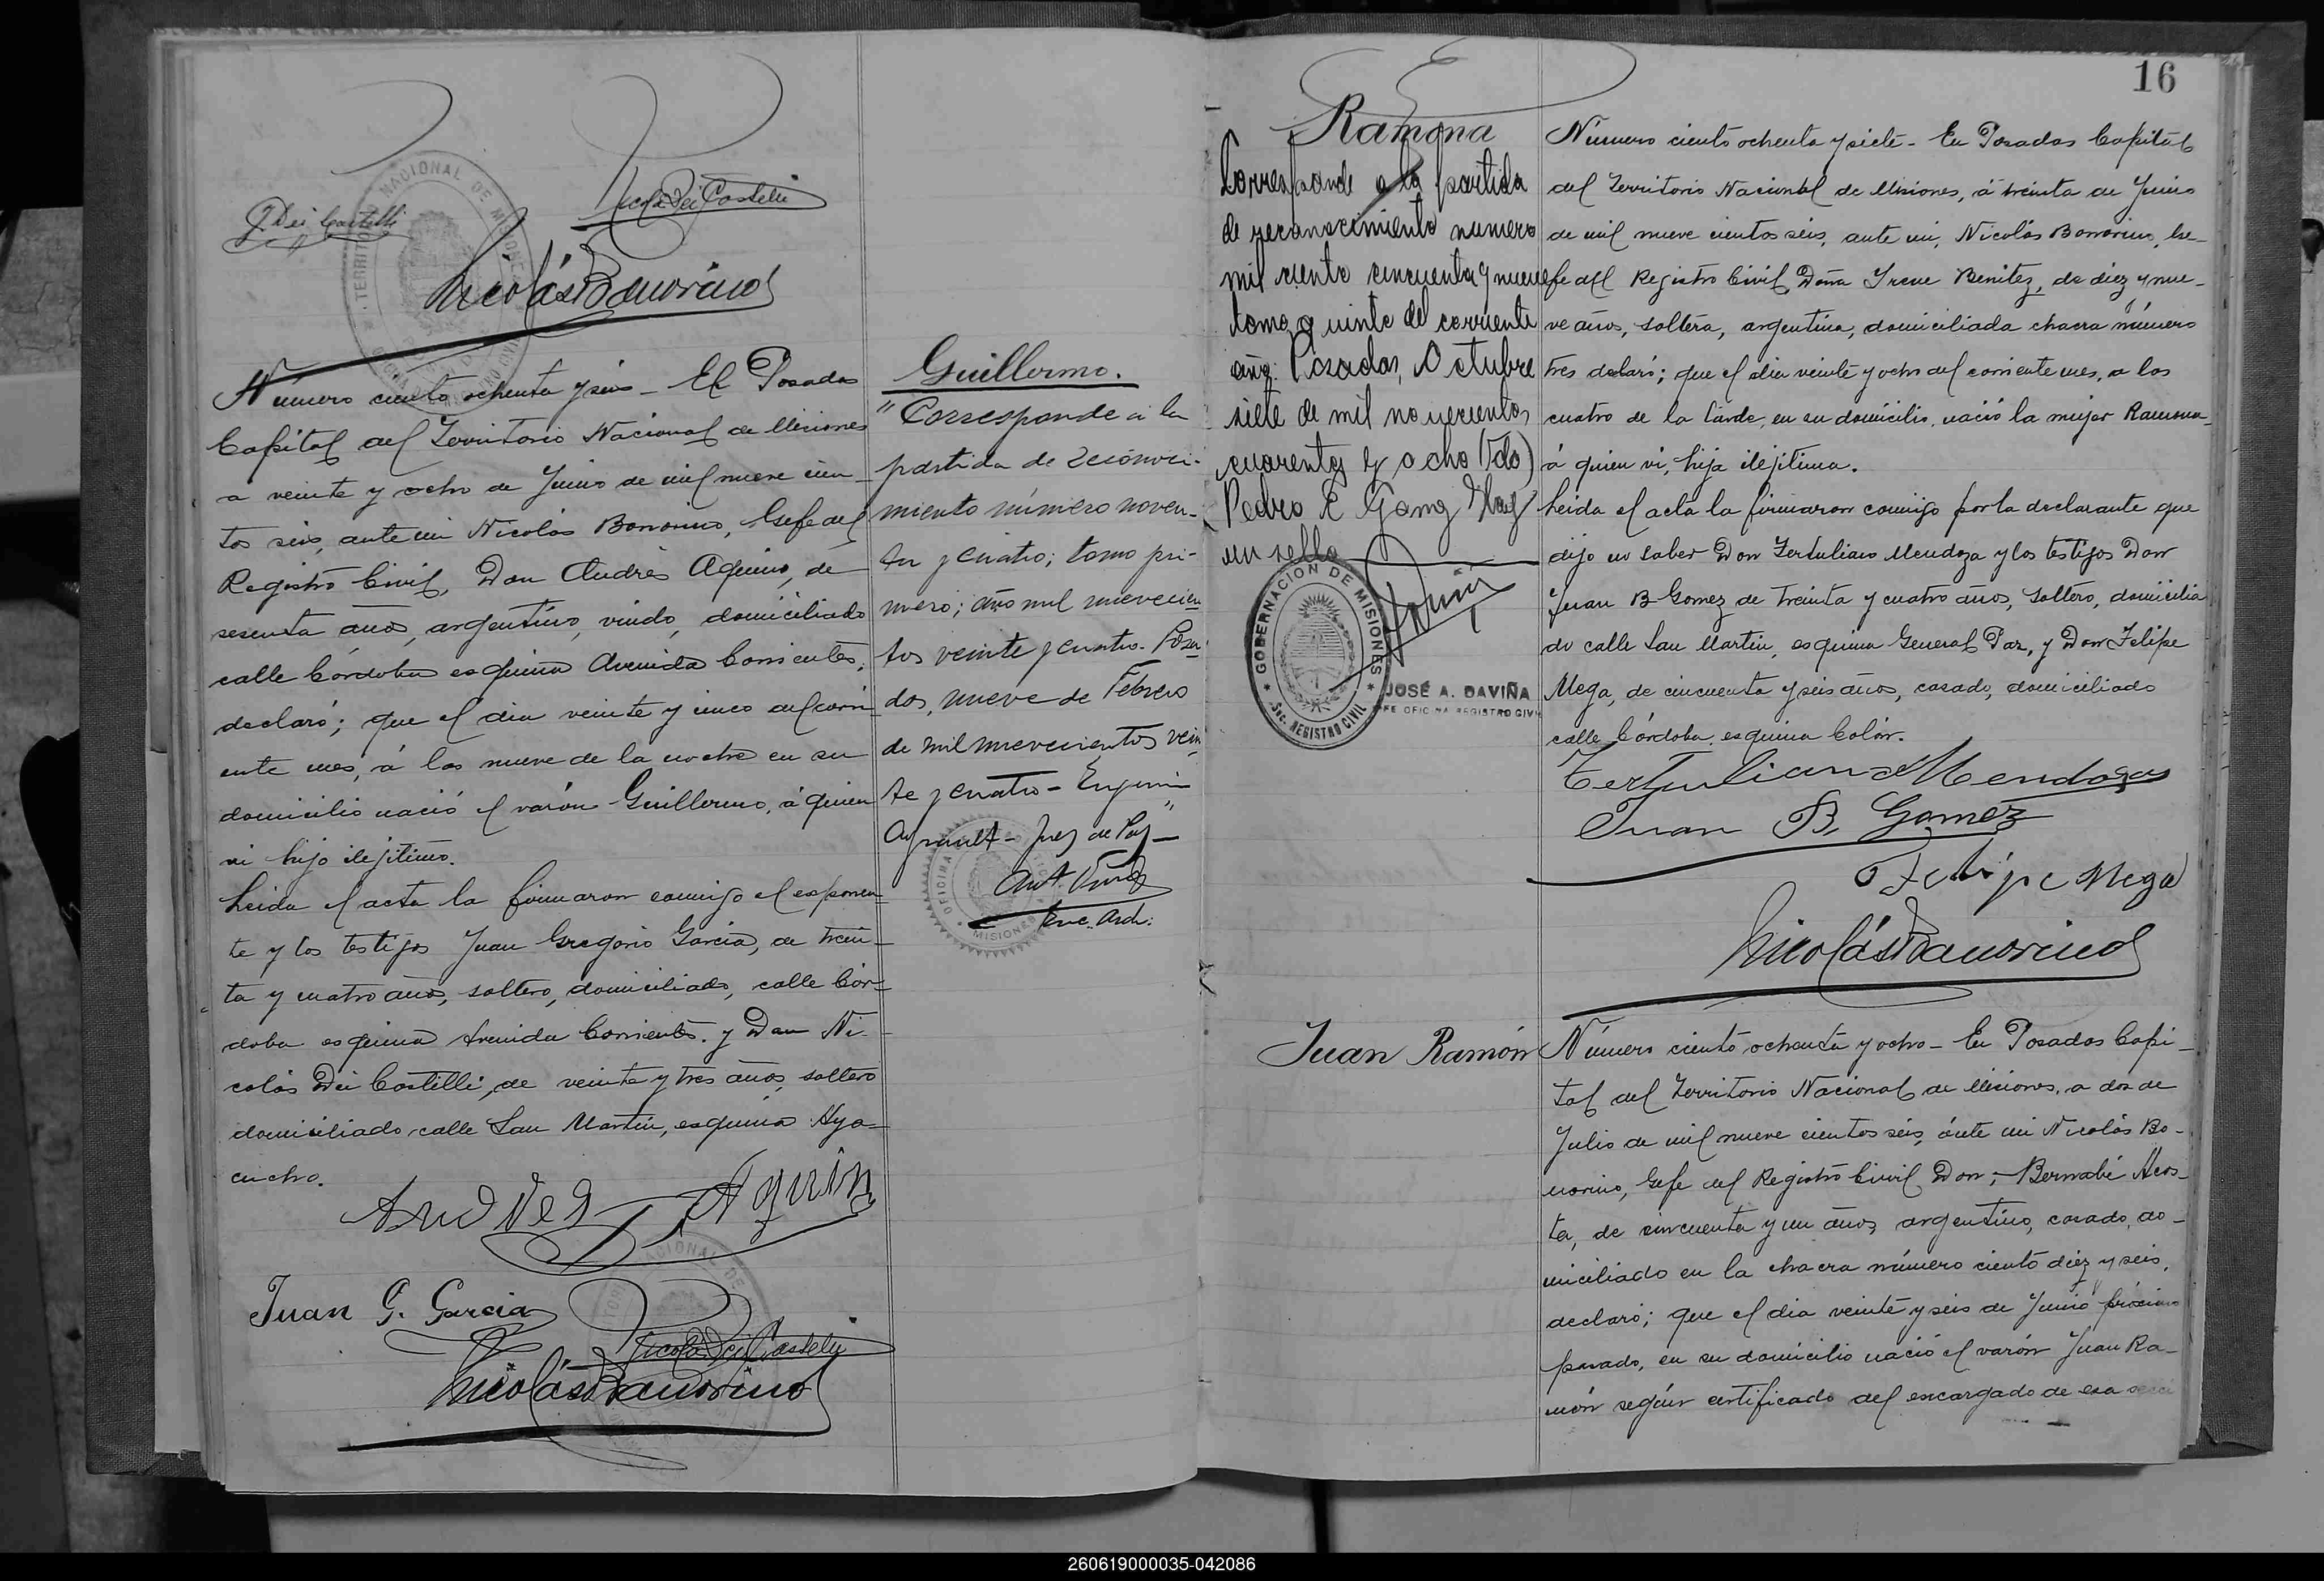 J. Dei Castelli
Nicolas Dei Castelli
Nicolás Bonorino
Número ciento ochenta y seis - En Posadas
Capital del Territorio Nacional de Misiones
a veinte y ocho de Junio de mil nueve cien
tos seis, ante mi Nicolás Bonorino, Gefe del
Registro Civil, Don Andrés Aquino, de
sesenta años, argentino, viudo, domiciliado
calle Córdoba esquina Avenida Corrientes,
declaró; que el dia veinte y cinco del corri
ente mes, á las nueve de la noche en su
domicilio nació el varón Guillermo, á quien
vi hijo ilejitimo.
Leida el acta la firmaron conmigo el esponen
te y los testigos Juan Gregorio Garcia, de trein-
ta y cuatro años, soltero, domiciliado, calle Cór-
doba esquina Avenida Corrientes. y Don Ni-
colás Dei Castelli, de veinte y tres años, soltero
domiciliado calle San Martin, esquina Aya-
cucho.
Andres Aquino
Juan G. Garcia
Nicolas Dei Castelli
Nicolás Bonorino
Guillermo.
"Corresponde á la
partida de reconoci-
miento número noven-
ta y cuatro; tomo pri-
mero; año mil novecien
tos veinte y cuatro. Posa
das, nueve de Febrero
de mil novecientos vein
te y cuatro - Eugenio
Ayrault - Juez de Paz -"
Enc. Arch.
16
Ramona
Corresponde a la partida
de reconocimiento numero
mil ciento cincuenta y nueve
tomo quinto del corriente
año. Posadas, Octubre
siete de mil novecientos
cuarenta y ocho (Fdo)
Pedro E Gomg Hay
un sello
GOBERNACION DE MISIONES
Sec. REGISTRO CIVIL
JOSÉ A. DAVIÑA
JEFE OFICINA REGISTRO CIVIL
Número ciento ochenta y siete - En Posadas Capital
del Territorio Nacional de Misiones, á treinta de Junio
de mil nueve cientos seis, ante mi, Nicolás Bonorino, Ge-
fe del Registro Civil, Doña Irene Benitez, de diez y nue-
ve años, soltera, argentina, domiciliada chacra número
tres declaró; que el dia veinte y ocho del corriente mes, a las
cuatro de la tarde, en su domicilio, nació la mujer Ramona-
á quien vi, hija ilejitima.
Leida el acta la firmaron conmigo por la declarante que
dijo no saber Don Tertuliano Mendoza y los testigos Don
Juan B Gomez de treinta y cuatro años, soltero, domicilia
do calle San Martin, esquina General Paz, y Don Felipe
Mega, de cincuenta y seis años, casado, domiciliado
calle Córdoba esquina Colón.
Tertuliano Mendoza
Juan B. Gomez
Felipe Mega
Nicolás Bonorino
Juan Ramón
Número ciento ochenta y ocho - En Posadas Capi-
tal del Territorio Nacional de Misiones, a dos de
Julio de mil nueve cientos seis, ánte mi Nicolás Bo-
norino, Gefe del Registro Civil Don, Bernabé Acos-
ta, de cincuenta y un años, argentino, casado, do-
miciliado en la chacra número ciento diez y seis,
declaró; que el dia veinte y seis de Junio próximo
pasado, en su domicilio nació el varón Juan Ra-
món según certificado del encargado de esa
260619000035-042086